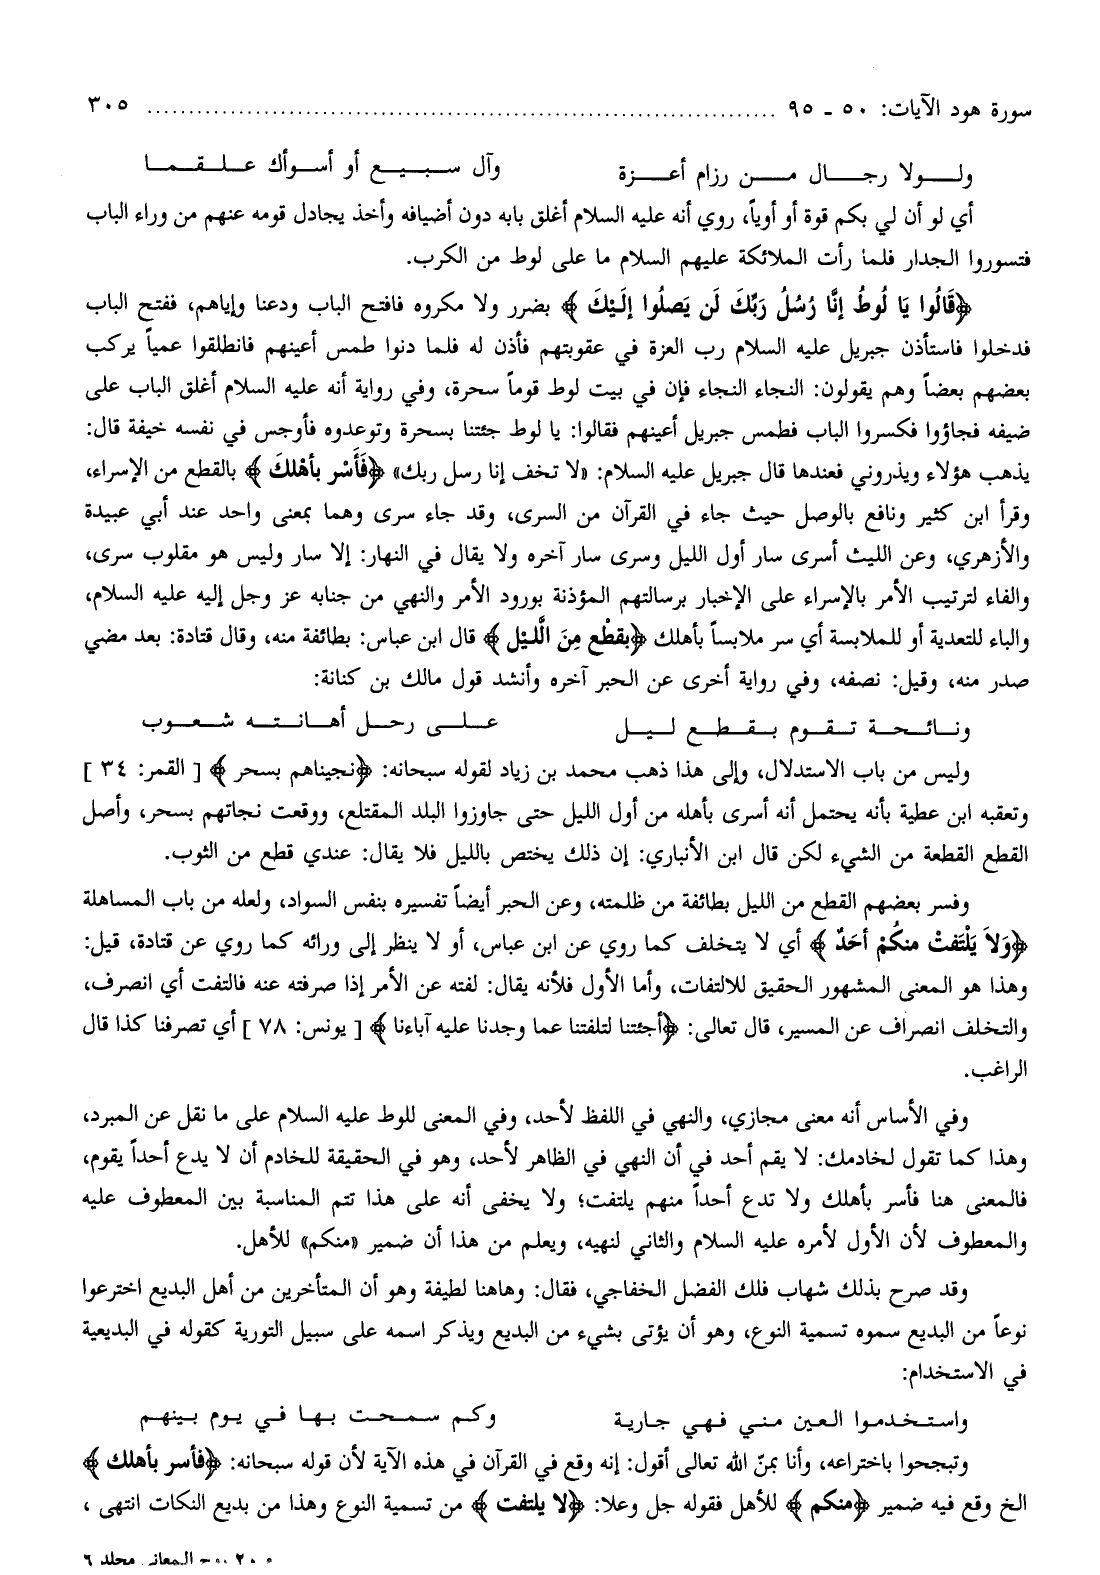 سورة هود الآيات: ٥٠ ـ ٩٥ ................................................................................ ٣٠٥
ولولا رجال من رزام أعزة وآل سبيع أو أسوأك علقما
أي لو أن لي بكم قوة أو أوياً، روي أنه عليه السلام أغلق بابه دون أضيافه وأخذ يجادل قومه عنهم من وراء الباب
فتسوروا الجدار فلما رأت الملائكة عليهم السلام ما على لوط من الكرب.
﴿قَالُوا يَا لُوطُ إنَّا رُسُلُ رَبِّكَ لَن يَصلُوا إلَيْكَ﴾ بضرر ولا مكروه فافتح الباب ودعنا وإياهم، ففتح الباب
فدخلوا فاستأذن جبريل عليه السلام رب العزة في عقوبتهم فأذن له فلما دنوا طمس أعينهم فانطلقوا عمياً يركب
بعضهم بعضاً وهم يقولون: النجاء النجاء فإن في بيت لوط قوماً سحرة، وفي رواية أنه عليه السلام أغلق الباب على
ضيفه فجاؤوا فكسروا الباب فطمس جبريل أعينهم فقالوا: يا لوط جئتنا بسحرة وتوعدوه فأوجس في نفسه خيفة قال:
يذهب هؤلاء ويذروني فعندها قال جبريل عليه السلام: «لا تخف إنا رسل ربك» ﴿فَأَسْر بأهْلكَ﴾ بالقطع من الإسراء،
وقرأ ابن كثير ونافع بالوصل حيث جاء في القرآن من السرى، وقد جاء سرى وهما بمعنى واحد عند أبي عبيدة
والأزهري، وعن الليث أسرى سار أول الليل وسرى سار آخره ولا يقال في النهار: إلا سار وليس هو مقلوب سرى،
والفاء لترتيب الأمر بالإسراء على الإخبار برسالتهم المؤذنة بورود الأمر والنهي من جنابه عز وجل إليه عليه السلام،
والباء للتعدية أو للملابسة أي سر ملابساً بأهلك ﴿بقطْع مِنَ الَّليْل﴾ قال ابن عباس: بطائفة منه، وقال قتادة: بعد مضي
صدر منه، وقيل: نصفه، وفي رواية أخرى عن الحبر آخره وأنشد قول مالك بن كنانة:
ونائحة تقوم بقطع ليل على رجل أهانته شعوب
وليس من باب الاستدلال، وإلى هذا ذهب محمد بن زياد لقوله سبحانه: ﴿نجيناهم بسحر﴾ [ القمر: ٣٤ ]
وتعقبه ابن عطية بأنه يحتمل أنه أسرى بأهله من أول الليل حتى جاوزوا البلد المقتلع، ووقعت نجاتهم بسحر، وأصل
القطع القطعة من الشيء لكن قال ابن الأنباري: إن ذلك يختص بالليل فلا يقال: عندي قطع من الثوب.
وفسر بعضهم القطع من الليل بطائفة من ظلمته، وعن الحبر أيضاً تفسيره بنفس السواد، ولعله من باب المساهلة
﴿وَلاَ يَلْتَفتْ منكُمْ أحَدٌ﴾ أي لا يتخلف كما روي عن ابن عباس، أو لا ينظر إلى ورائه كما روي عن قتادة، قيل:
وهذا هو المعنى المشهور الحقيق للالتفات، وأما الأول فلأنه يقال: لفته عن الأمر إذا صرفته عنه فالتفت أي انصرف،
والتخلف انصراف عن المسير، قال تعالى: ﴿أجئتنا لتلفتنا عما وجدنا عليه آباءنا﴾ [ يونس: ٧٨ ] أي تصرفنا كذا قال
الراغب.
وفي الأساس أنه معنى مجازي، والنهي في اللفظ لأحد، وفي المعنى للوط عليه السلام على ما نقل عن المبرد،
وهذا كما تقول لخادمك: لا يقم أحد في أن النهي في الظاهر لأحد، وهو في الحقيقة للخادم أن لا يدع أحداً يقوم،
فالمعنى هنا فأسر بأهلك ولا تدع أحداً منهم يلتفت؛ ولا يخفى أنه على هذا تتم المناسبة بين المعطوف عليه
والمعطوف لأن الأول لأمره عليه السلام والثاني لنهيه، ويعلم من هذا أن ضمير «منكم» للأهل.
وقد صرح بذلك شهاب فلك الفضل الخفاجي، فقال: وهاهنا لطيفة وهو أن المتأخرين من أهل البديع اخترعوا
نوعاً من البديع سموه تسمية النوع، وهو أن يؤتى بشيء من البديع ويذكر اسمه على سبيل التورية كقوله في البديعية
في الاستخدام:
واستخدموا العين مني فهي جارية وكم سمحت بها في يوم بينهم
وتبجحوا باختراعه، وأنا بمنّ الله تعالى أقول: إنه وقع في القرآن في هذه الآية لأن قوله سبحانه: ﴿فأسر بأهلك﴾
الخ وقع فيه ضمير ﴿منكم﴾ للأهل فقوله جل وعلا: ﴿لا يلتفت﴾ من تسمية النوع وهذا من بديع النكات انتهى ،
المعاني مجلد ٦